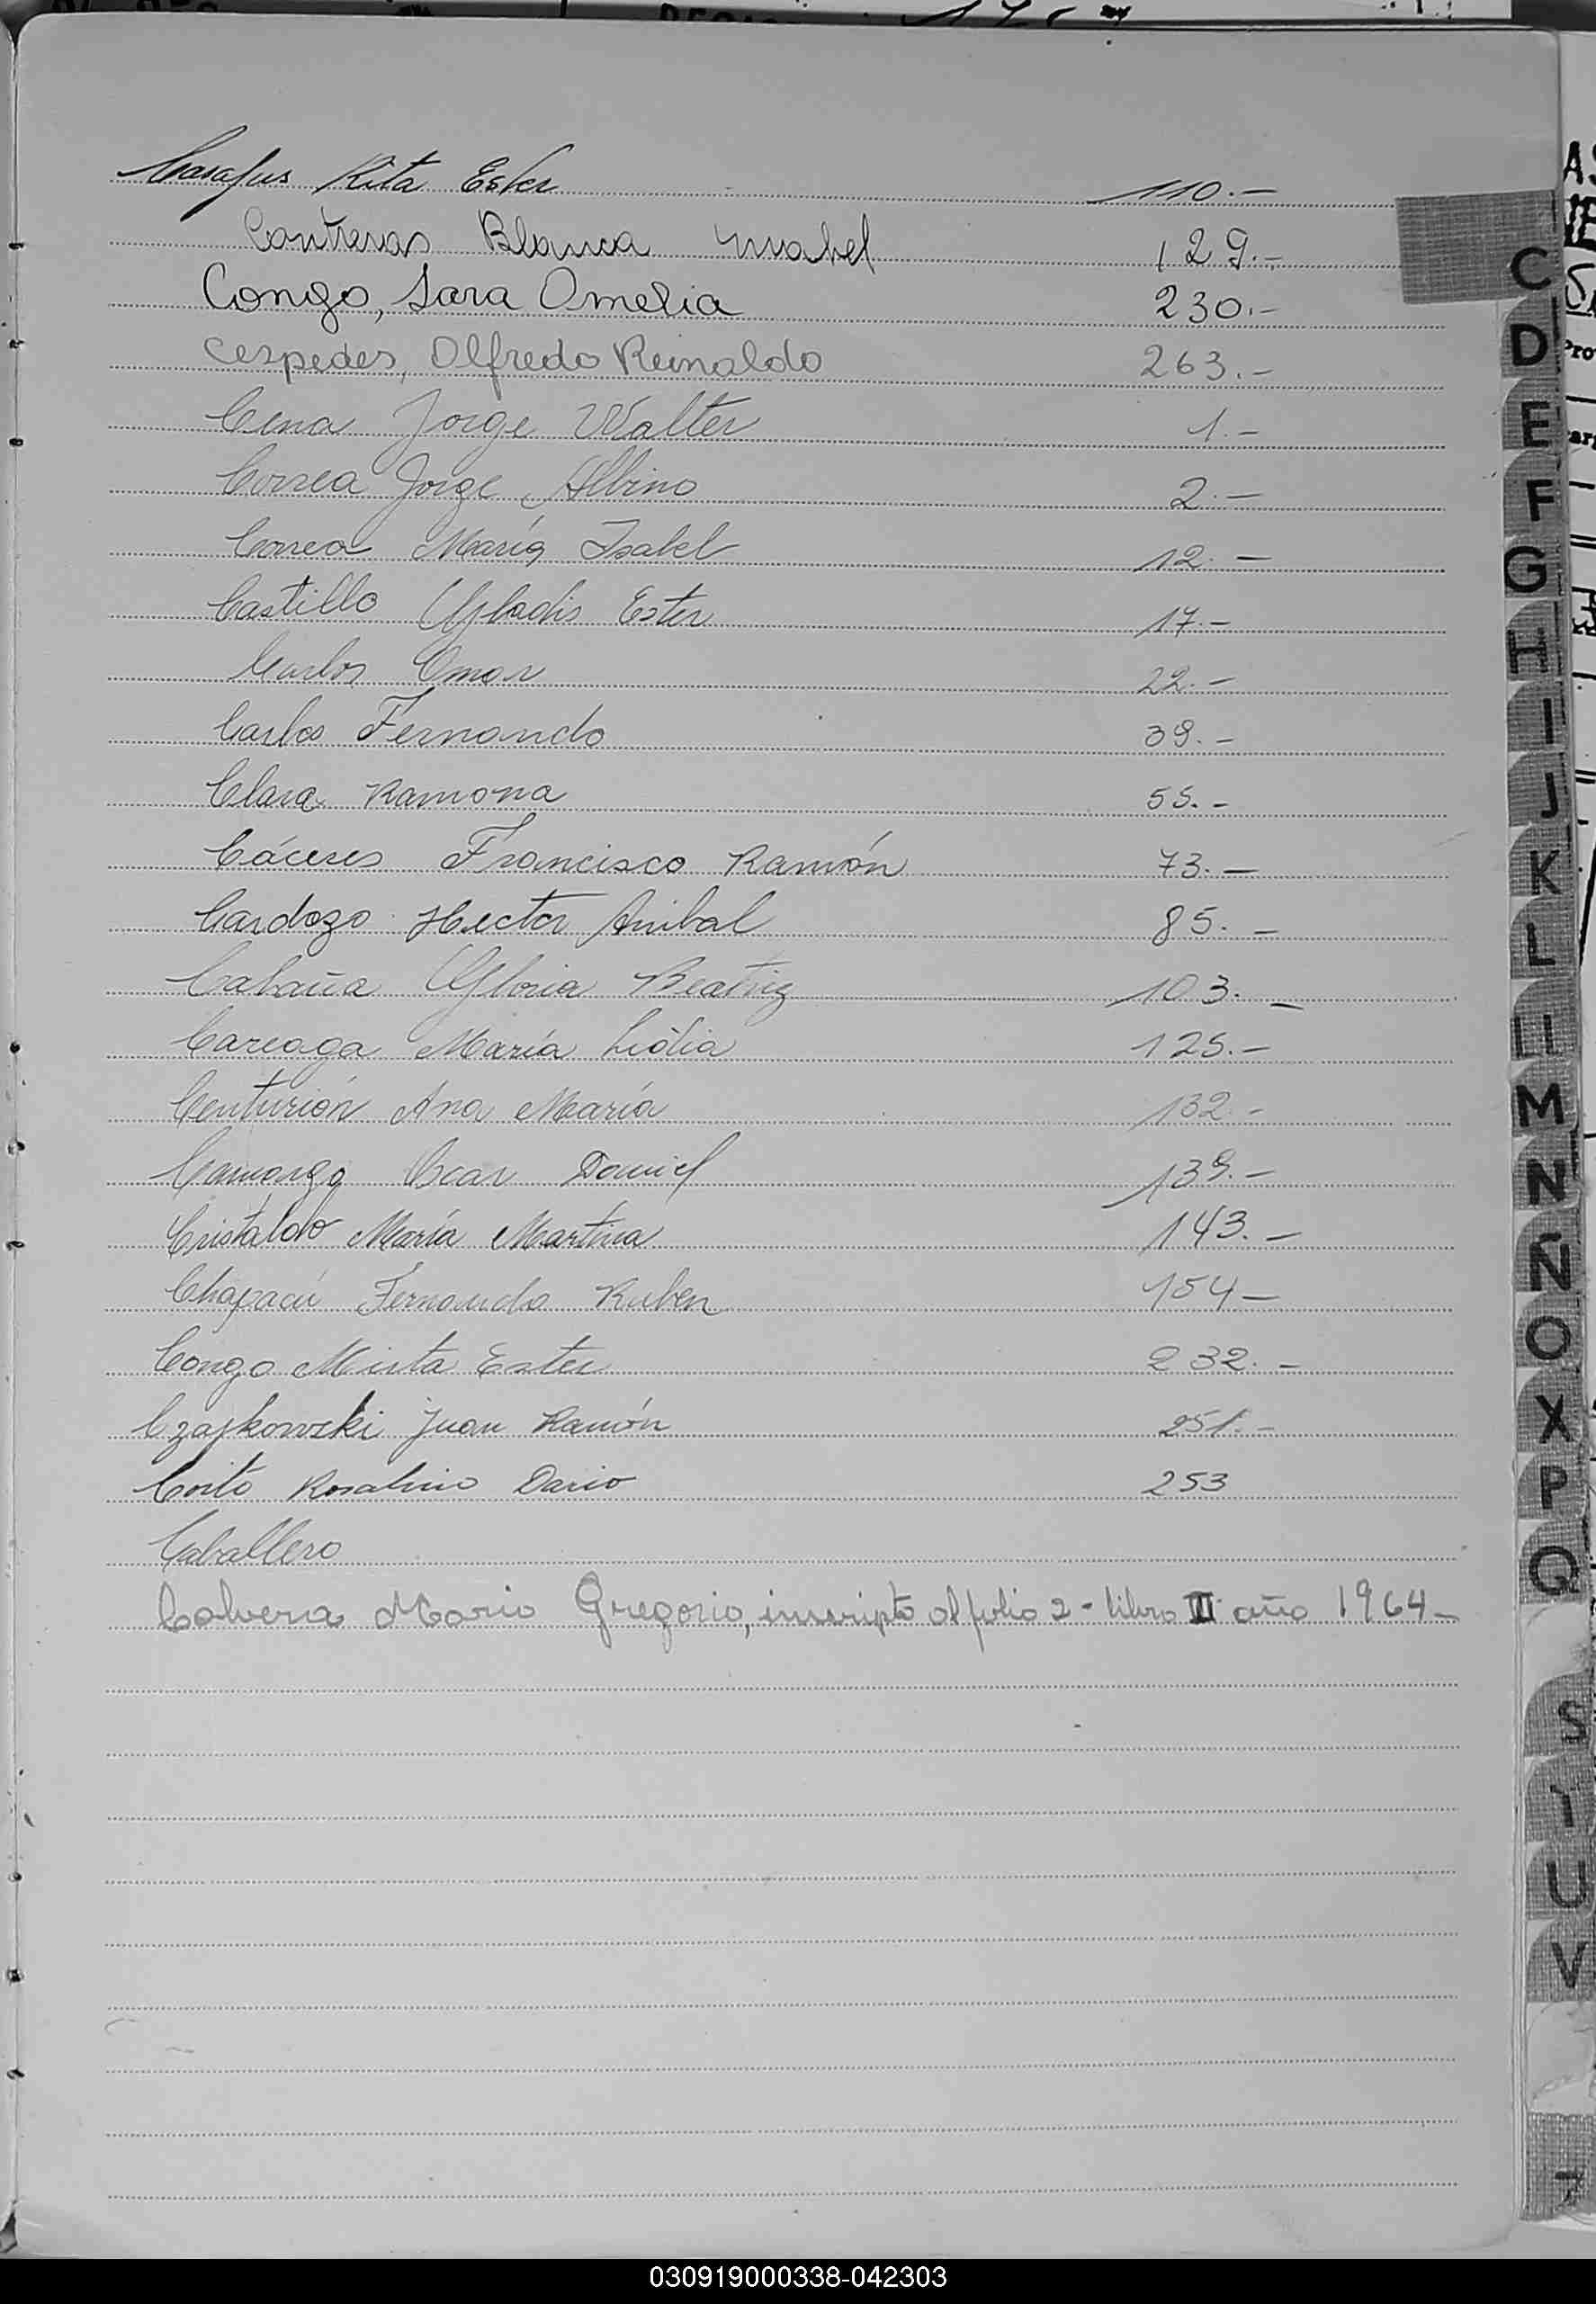 Casafus Rita Ester 110.-
Contreras Blanca Mabel 129.-
Congo, Sara Omelia 230.-
Cespedes, Olfredo Reinaldo 263.-
Cena Jorge Walter 1.-
Correa Jorge Albino 2.-
Correa María Isabel 12.-
Castillo Gladis Ester 17.-
Carlos Omar 22.-
Carlos Fernando 39.-
Clara Ramona 55.-
Cáceres Francisco Ramón 73.-
Cardozo Hector Anibal 85.-
Cabaña Gloria Beatriz 103.-
Careaga María Lidia 125.-
Centurión Ana María 132.-
Camargo Oscar Daniel 139.-
Cristaldo María Martina 143.-
Chapacú Fernando Ruben 154-
Congo Mirta Ester 232.-
Czajkowski Juan Ramón 251.-
Rosalino Dario 253
Caballero
Calvera Mario Gregorio, inscripto al folio 2 - libro III año 1964-
C
D
E
F
G
H
I
J
K
L
LL
M
N
Ñ
O
X
P
Q
S
U
V
030919000338-042303